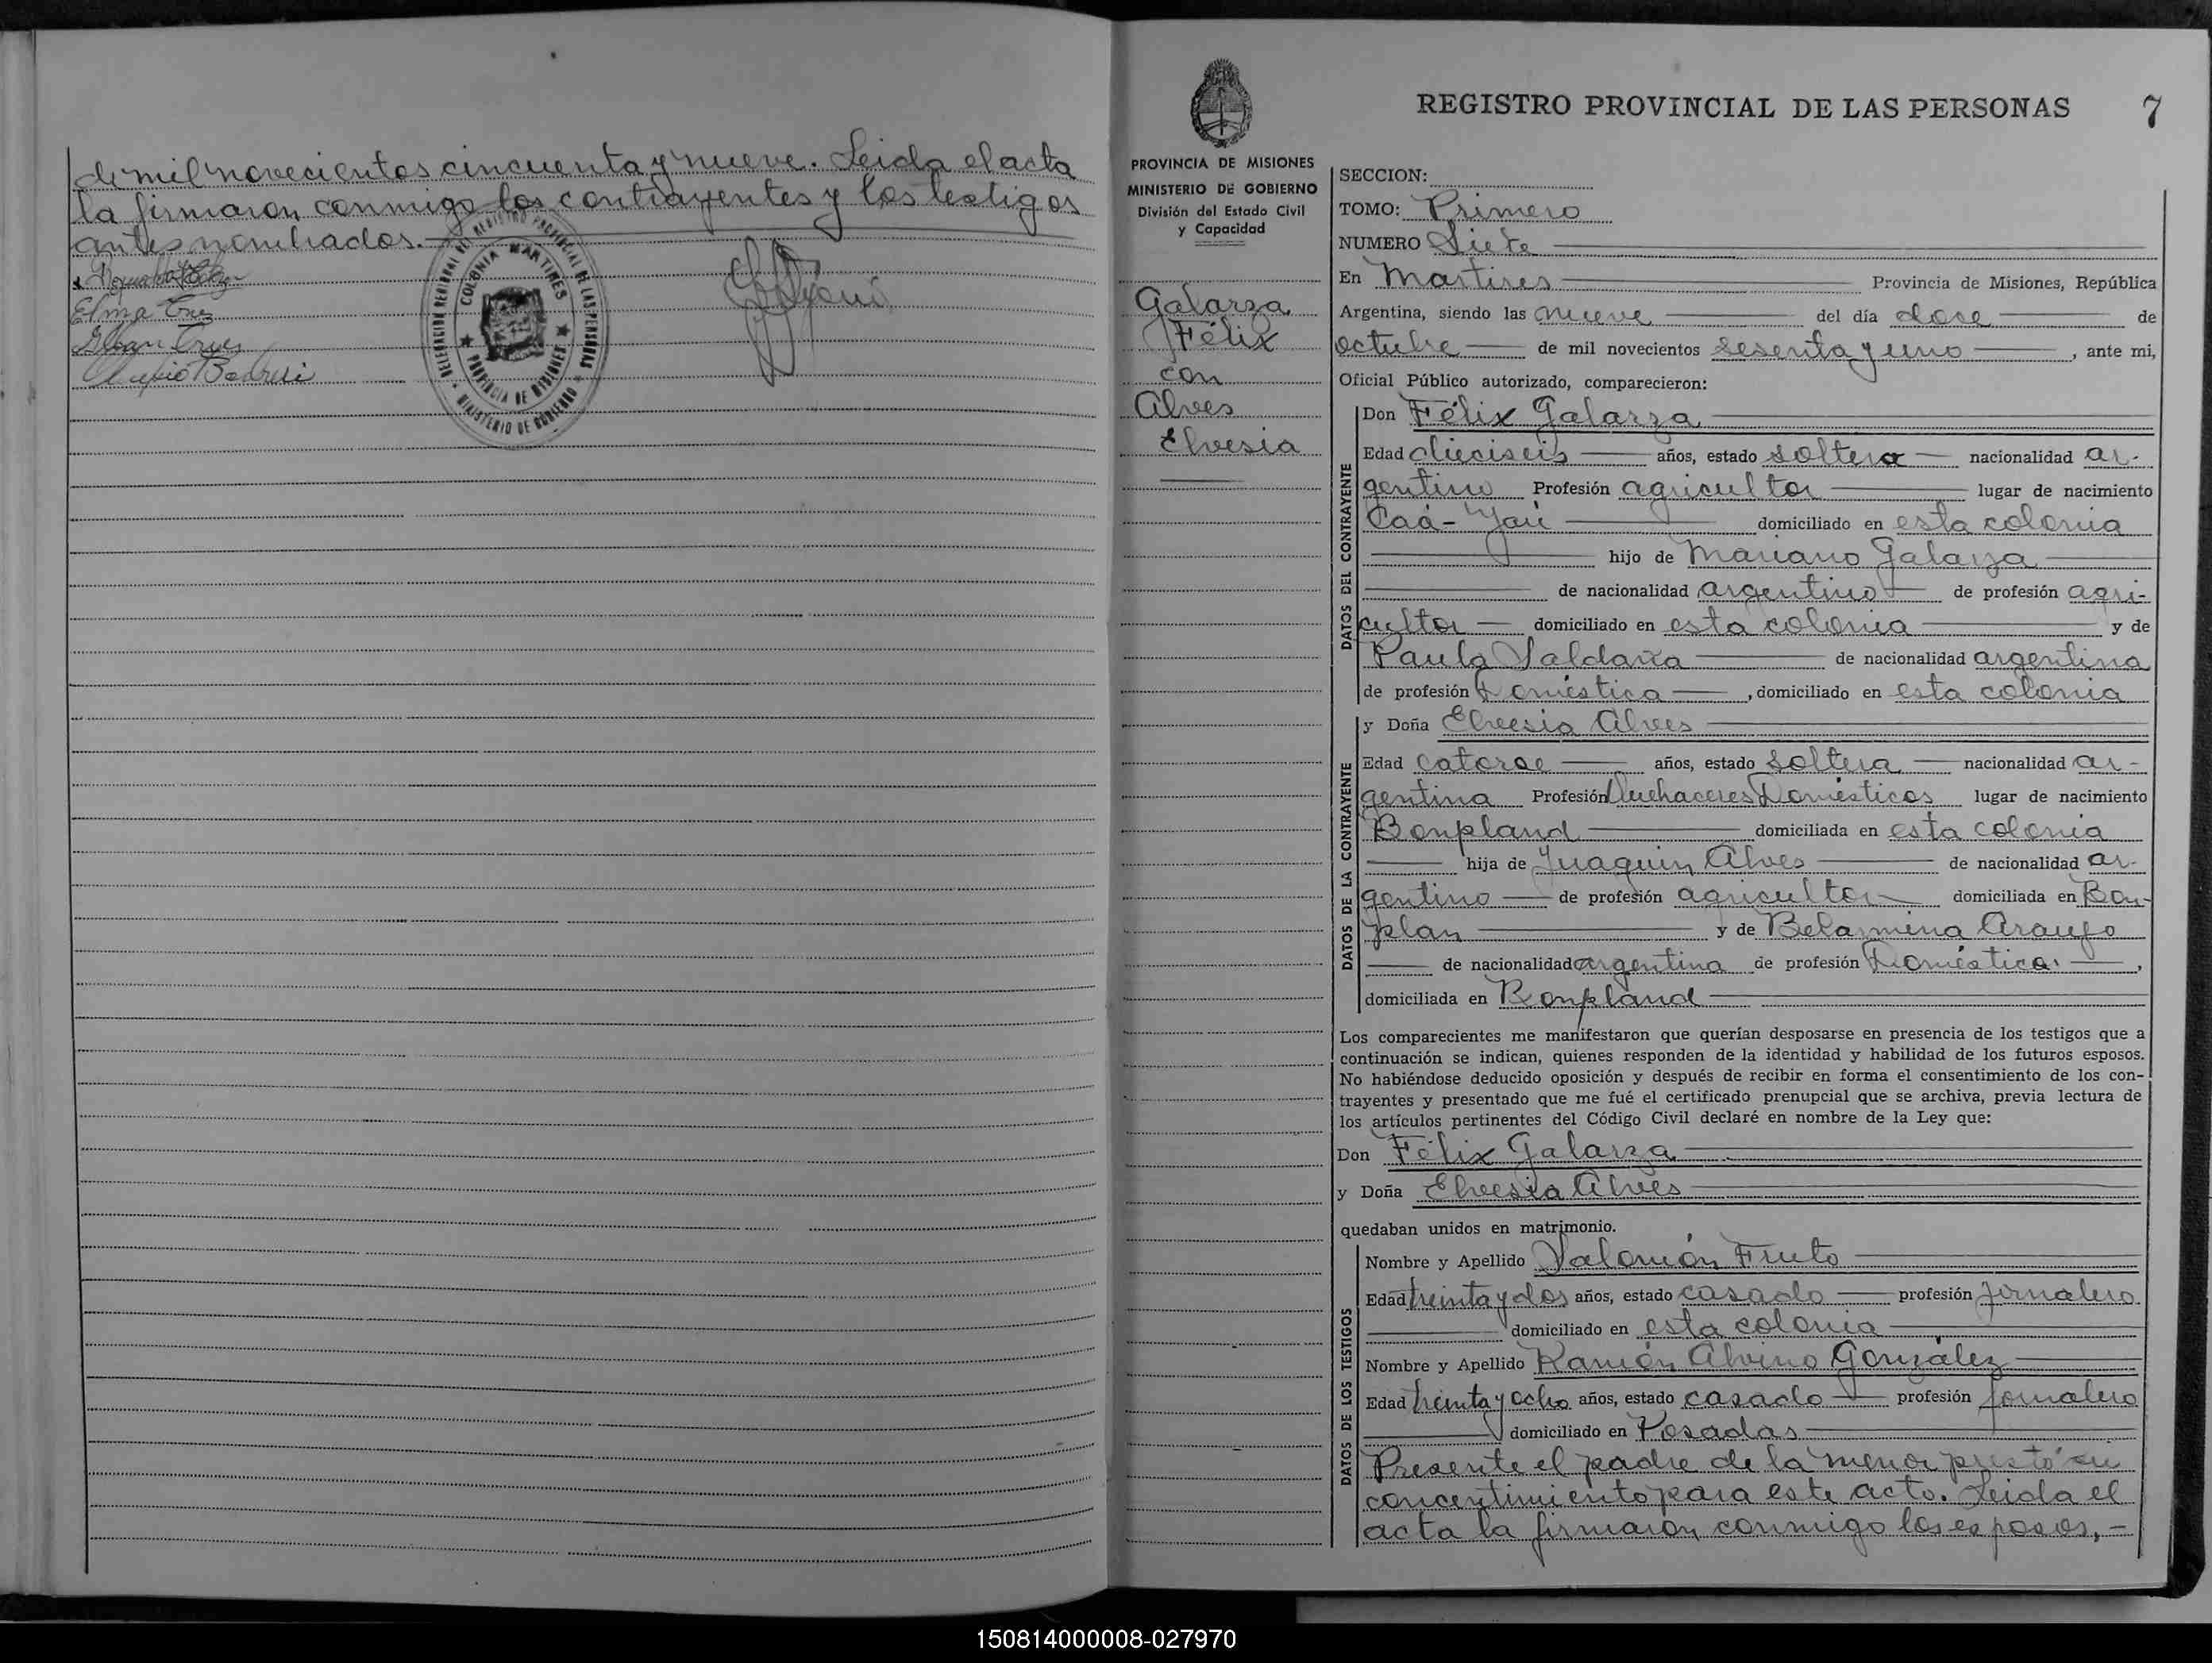 de mil novecientos cincuenta y nueve. Leida el acta
la firmaron conmigo los contrayentes y los testigos
antes nombrados.
Elma Cruz
DELEGACION REGIONAL DEL REGISTRO PROVINCIAL DE LAS PERSONAS
COLONIA MARTIRES
PROVINCIA DE MISIONES
MINISTERIO DE GOBIERNO
PROVINCIA DE MISIONES
MINISTERIO DE GOBIERNO
División del Estado Civil
y Capacidad
Galarza
Félix
con
Alves
Elvesia
REGISTRO PROVINCIAL DE LAS PERSONAS 7
SECCION:
TOMO: Primero
NUMERO Siete
En Martires Provincia de Misiones, República
Argentina, siendo las nueve del día doce de
octubre de mil novecientos sesenta y uno, ante mi,
Oficial Público autorizado, comparecieron:
Don Félix Galarza
DATOS DEL CONTRAYENTE
Edad dieciseis años, estado soltero nacionalidad ar-
gentino Profesión agricultor lugar de nacimiento
Caá-Yarí domiciliado en esta colonia
hijo de Mariano Galarza
de nacionalidad argentino de profesión agri-
cultor domiciliado en esta colonia y de
Paula Saldaña de nacionalidad argentina
de profesión Doméstica, domiciliado en esta colonia
y Doña Elvesia Alves
DATOS DE LA CONTRAYENTE
Edad catorce años, estado soltera nacionalidad ar-
gentina Profesión Quehaceres Domésticos lugar de nacimiento
Bonpland domiciliada en esta colonia
hija de Juaquin Alves de nacionalidad ar-
gentino de profesión agricultor domiciliada en Bon-
plan y de Belarmina Araujo
de nacionalidad argentina de profesión Doméstica,
domiciliada en Bonpland
Los comparecientes me manifestaron que querían desposarse en presencia de los testigos que a
continuación se indican, quienes responden de la identidad y habilidad de los futuros esposos.
No habiéndose deducido oposición y después de recibir en forma el consentimiento de los con-
trayentes y presentado que me fué el certificado prenupcial que se archiva, previa lectura de
los artículos pertinentes del Código Civil declaré en nombre de la Ley que:
Don Félix Galarza
y Doña Elvesia Alves
quedaban unidos en matrimonio.
DATOS DE LOS TESTIGOS
Nombre y Apellido Salomón Fruto
Edad treinta y dos años, estado casado profesión jornalero
domiciliado en esta colonia
Nombre y Apellido Ramón Alvino González
Edad treinta y ocho años, estado casado profesión jornalero
domiciliado en Posadas
Presente el padre de la menor prestó su
concentimiento para este acto. Leida el
acta la firmaron conmigo los esposos,
150814000008-027970